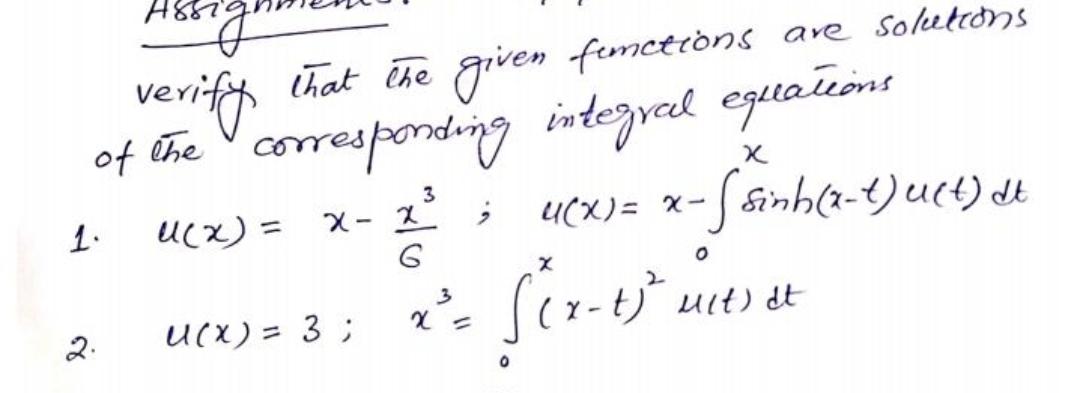 Assignment:
verify that the given functions are solutions
of the corresponding integral equations
1. u(x) = x - x³/6 ; u(x) = x - ∫₀ˣ sinh(x-t) u(t) dt
2. u(x) = 3 ; x³ = ∫₀ˣ (x-t)² u(t) dt